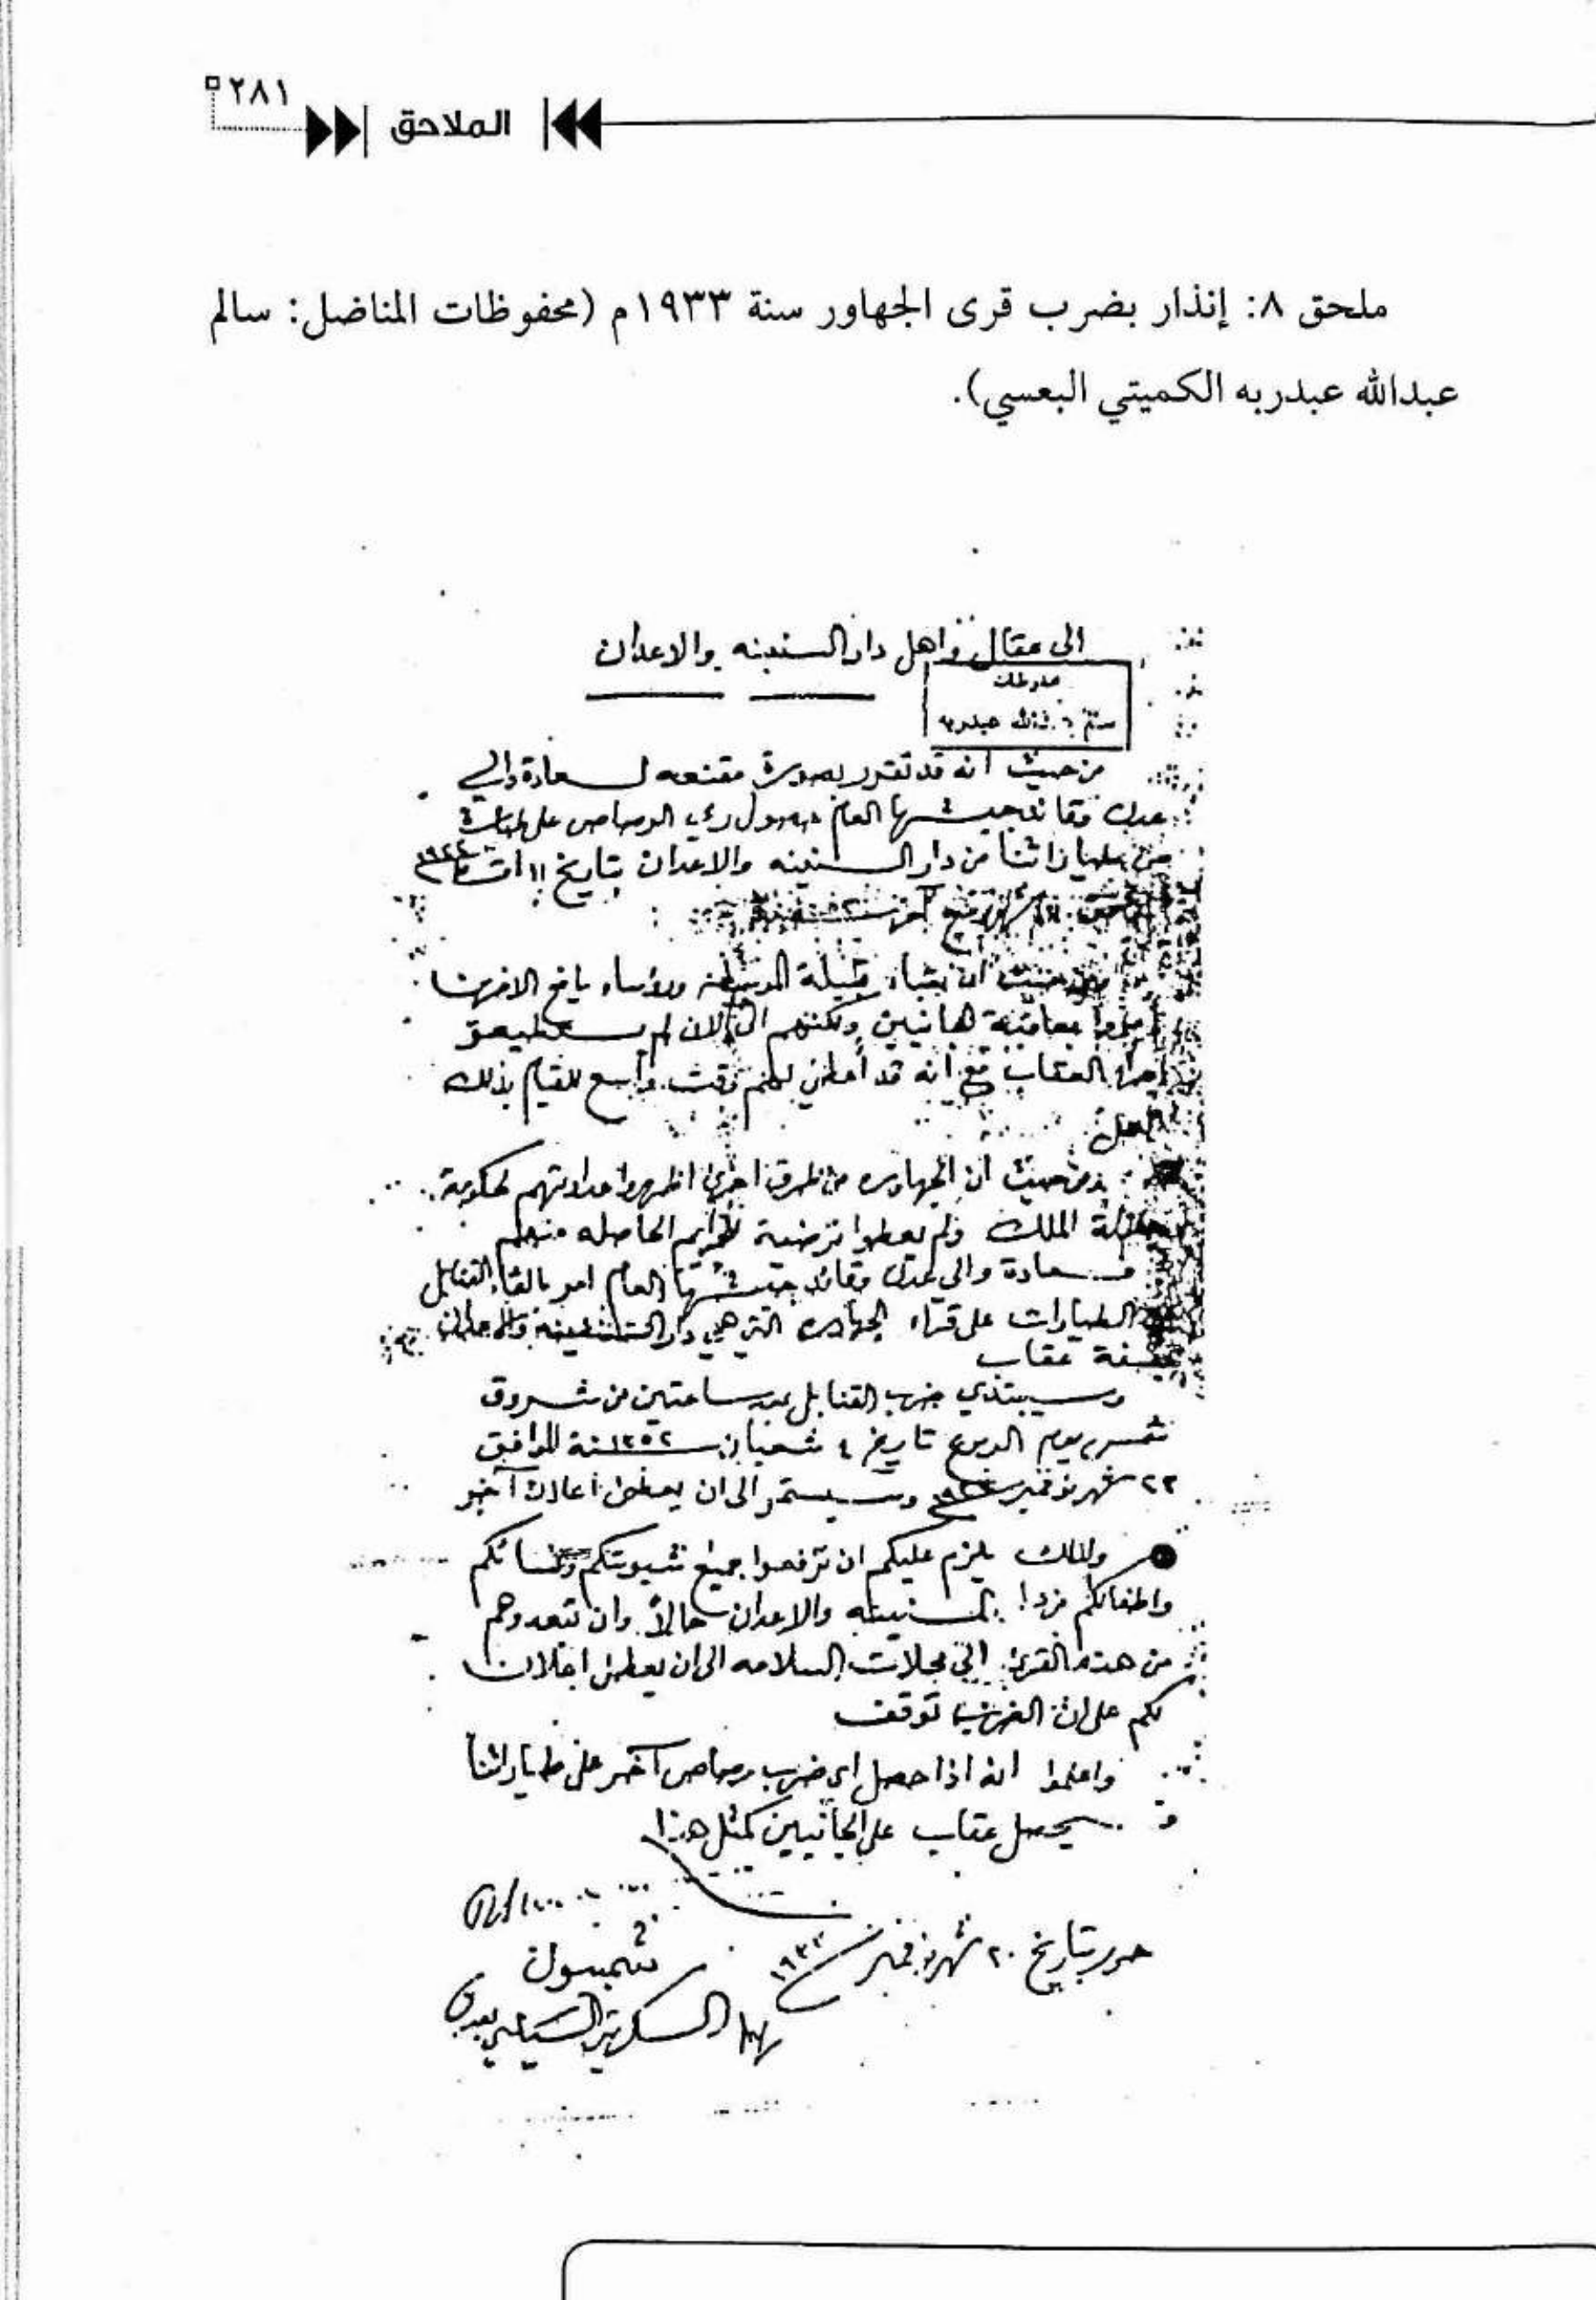 ٢٨١
الملاحق
ملحق ٨: إنذار بضرب قرى الجهاور سنة ١٩٣٣م (محفوظات المناضل: سالم
عبدالله عبدربه الكميتي البعسي).
الى عقال واهل دار السنينه والاعدان
عبدربه
من حيث انه قد تقرر بصورة مقنعه لسعادة والي
عدن وقائد جيشها العام رمي الرصاص على
من طياراتنا من دار السنينه والاعدان بتاريخ ١١
شهر ربيع
من حيث ان قبيلة ورؤساء يافع
بمعاقبة الجانيين ولكنهم الى الان لم يستطيعو
اجراء العقاب مع انه قد أعطي لهم وقت واسع للقيام بذلك
العمل
ومن حيث ان الجهاوره من طرف اخرى اظهروا عداوتهم لحكومة
جلالة الملك ولم يعطوا ترضية للجرايم الحاصله منهم
فسعادة والي عدن وقائد جيشها العام امر بالقاء القنابل
الطيارات على قراء الجهاوره التي هي دار السنينه والاعدان
بصفة عقاب
وسيبتدي ضرب القنابل بعد ساعتين من شروق
شمس يوم الربوع تاريخ ٤ شعبان سنة ١٣٥٢ الموافق
٢٢ شهر نوفمبر وسيستمر الى ان يعطى اعلان آخر
ولذلك يلزم عليكم ان ترفعوا جميع شيوبتكم ونسائكم
واطفالكم من دار السنينه والاعدان حالاً وان تبعدوهم
من هذه القرى الى محلات السلامه الى ان يعطى اعلان
لكم على ان الضرب توقف
واعلموا انه اذا حصل اي ضرب رصاص آخر على طياراتنا
سيحصل عقاب على الجانيين كمثل هذا
حرر بتاريخ ٢٠ شهر نوفمبر ١٩٣٣
السكرتير السياسي بعدن